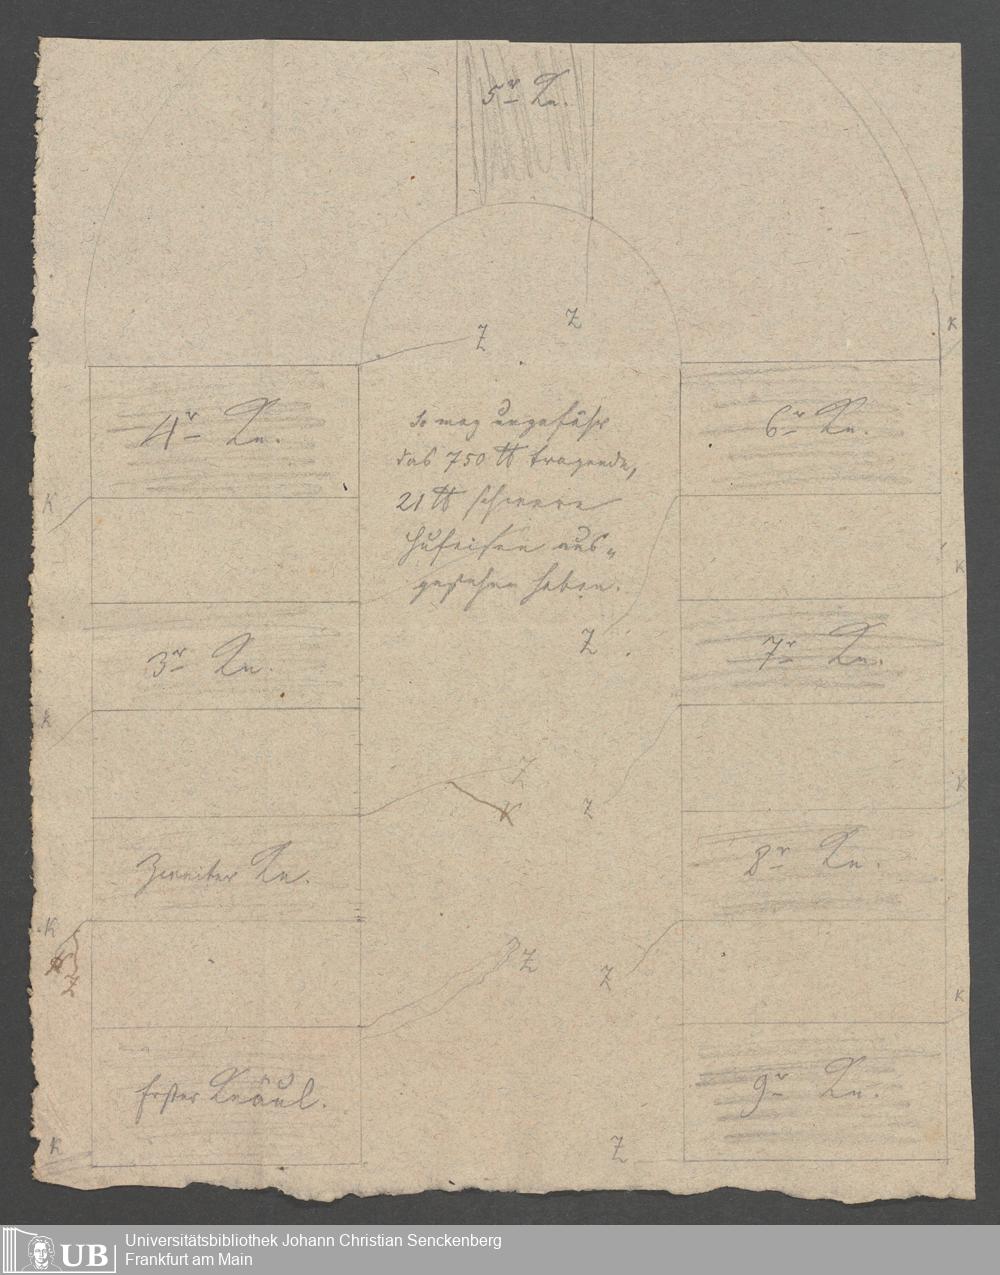 5r Kn.
Z
Z
K
4r Kn.
6r Kn.
So mag ungefähr
das 750 ℔ tragende,
21 ℔ schwere
Hufeisen aus-
gesehen haben.
K
K
Z
3r Kn.
7r Kn.
K
Z
K
Z
K
Zweiter Kn.
8r Kn.
K
Z
Z
Z
K
Erster Knäul.
9r Kn.
K
Z
UB
Universitätsbibliothek Johann Christian Senckenberg
Frankfurt am Main